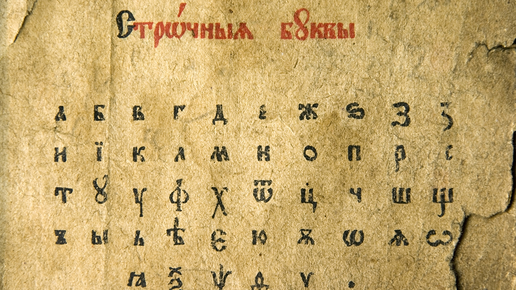 Стрѡ́чныѧ бꙋквы
а б в г д е ж ѕ з ꙁ
и ї к л м н о п р с
т ꙋ у ф х ѿ ц ч ш щ
ъ ы ь ѣ є ю ѧ ѡ ѫ ѡ
ꙗ ѯ ѱ ѳ ѵ .